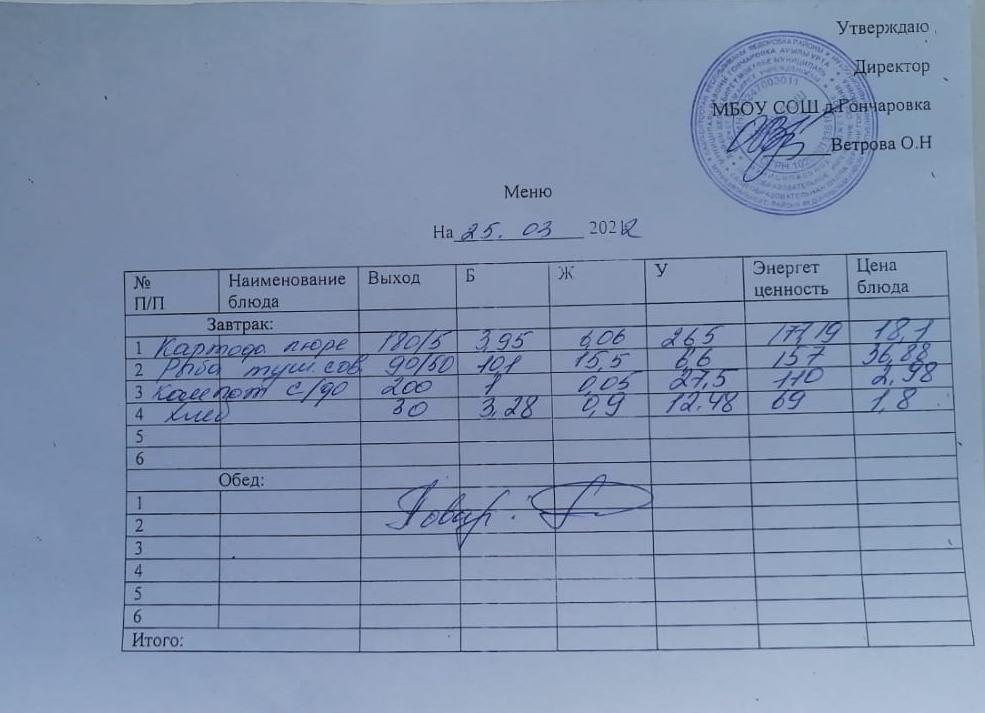 Утверждаю
Директор
МБОУ СОШ д.Гончаровка
Ветрова О.Н
Меню
На 25. 03 2022
№ П/П Наименование блюда Выход Б Ж У Энергет ценность Цена блюда
Завтрак:
1 Картоф. пюре 180/5 3,95 6,06 26,5 177,19 18,1
2 Рыба туш. с ов 90/50 10,1 15,5 6,6 157 36,88
3 Компот с/фр 200 1 0,05 27,5 110 2,98
4 Хлеб 30 3,28 0,9 12.48 69 1,8
5
6
Обед:
1
2 Повар:
3
4
5
6
Итого: